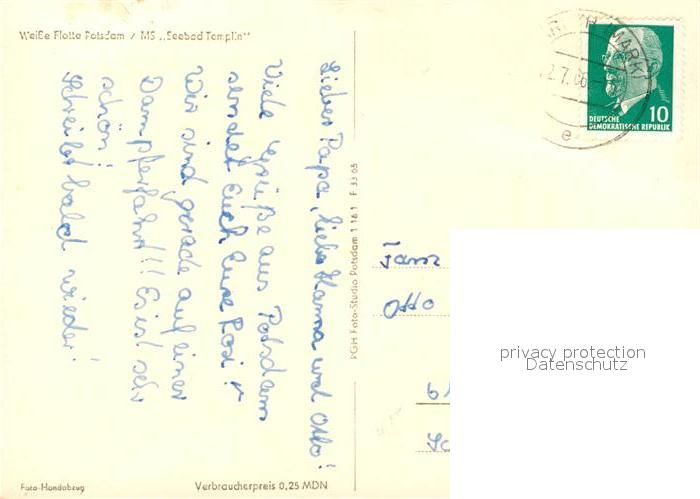 Weiße Flotte Potsdam / MS „Seebad Templin"
Lieber Papa, liebe Hanna und Otto!
Viele Grüße aus Potsdam
sendet Euch Eure Rosi!
Wir sind gerade auf einer
Dampferfahrt!! Es ist sehr
schön!
Schreibt bald wieder!
PGH Foto-Studio Potsdam 1 16 1 F 33 65
Foto-Handabzug
Verbraucherpreis 0,25 MDN
(MARK)
2.7.66
e
10
DEUTSCHE
DEMOKRATISCHE REPUBLIK
Fam
Otto
privacy protection
Datenschutz